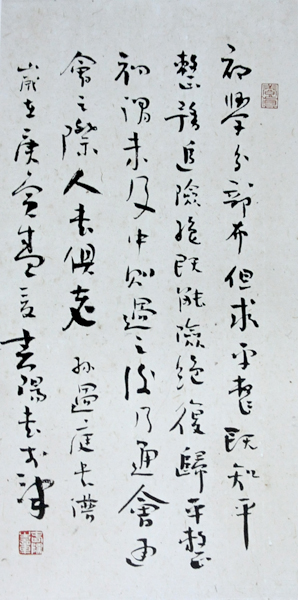 初學分部布但求平整既知平
整務追險絕既能險絕復歸平整
初謂未及中則過之後乃通會通
會之際人書俱老 孫過庭書譜
歲在庚寅 陽書於津